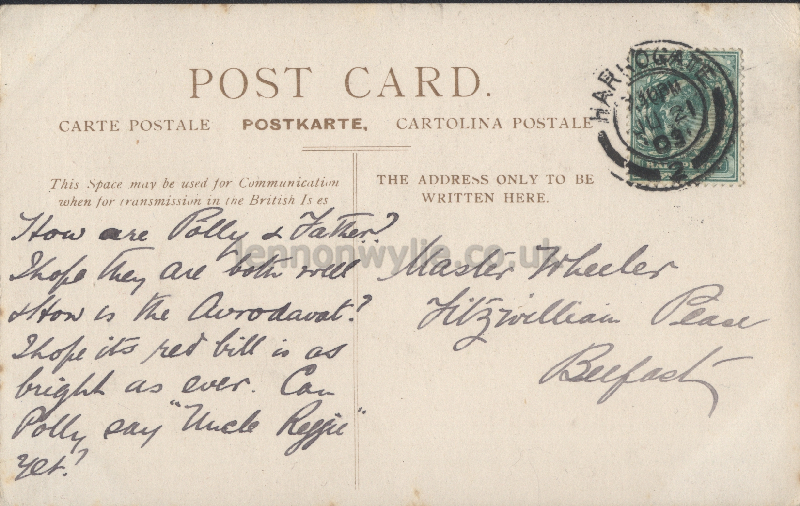 POST CARD.
CARTE POSTALE POSTKARTE, CARTOLINA POSTALE
This Space may be used for Communication
when for transmission in the British Is es
THE ADDRESS ONLY TO BE
WRITTEN HERE.
HARROGATE
JU 21
09
2
How are Polly & Father?
I hope they are both well
& How is the Avrodavat?
I hope its red bill is as
bright as ever. Can
Polly say "Uncle Reggie"
yet?
Master Wheeler
Fitzwilliam Place
Belfast
lennonwylie.co.uk